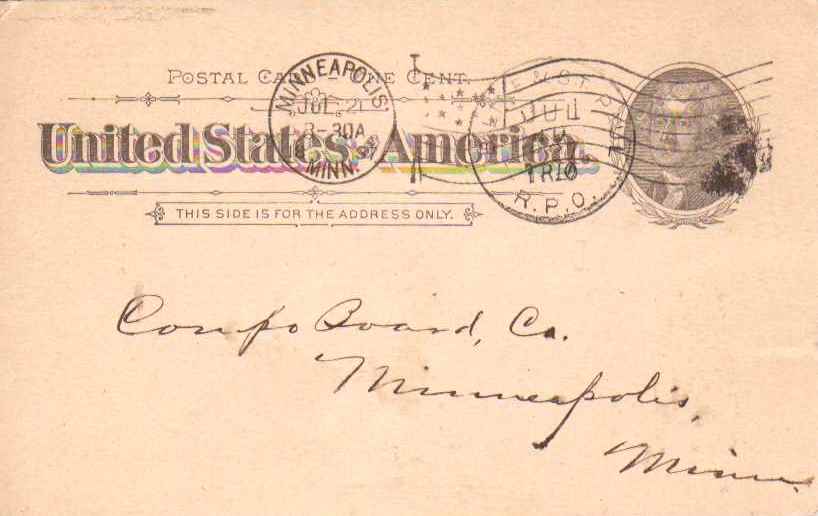 POSTAL CARD – ONE CENT.
United States of America.
THIS SIDE IS FOR THE ADDRESS ONLY.
MINNEAPOLIS.
JUL 21
8-30A
MINN.
& ST. PAUL
JUL
TR 10
R.P.O.
Compo Board, Co.
Minneapolis,
Minn.